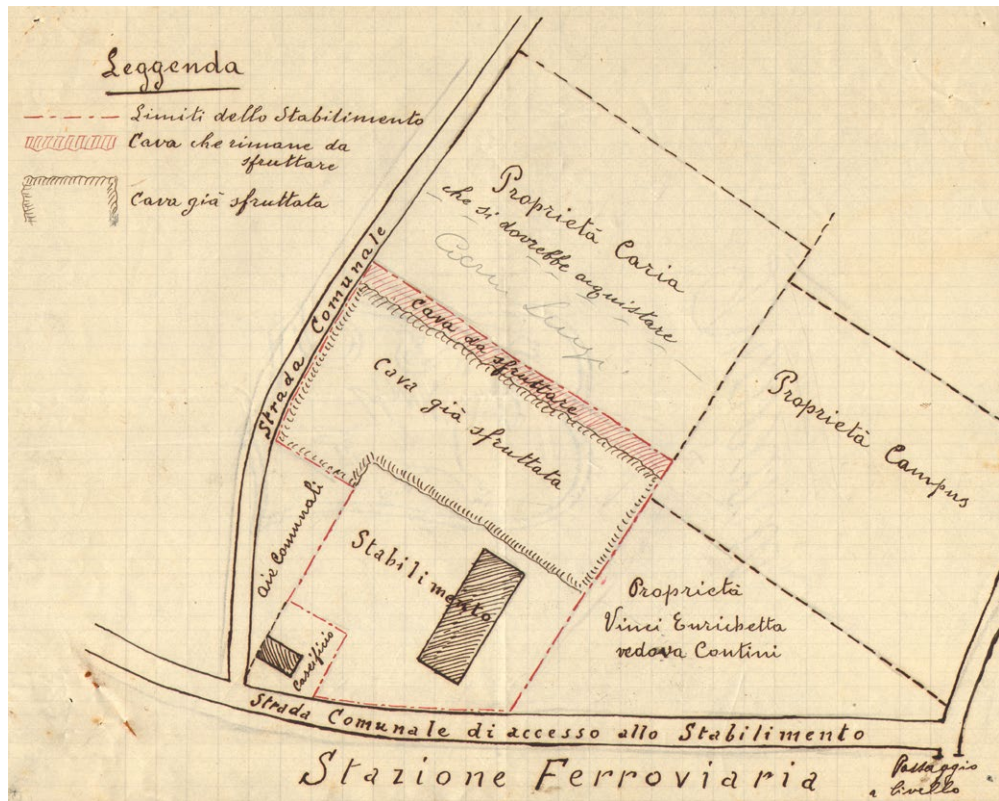 Leggenda
Limiti dello Stabilimento
Cava che rimane da
sfruttare
Cava già sfruttata
Strada Comunale
Proprietà Caria
che si dovrebbe acquistare
Luigi
Cava da sfruttare
Cava già
sfruttata
Proprietà Campus
Aie Comunali
Stabilimento
Caseificio
Proprietà
Vinci Enrichetta
vedova Contini
Strada Comunale di accesso allo Stabilimento
Stazione Ferroviaria
Passaggio
a livello